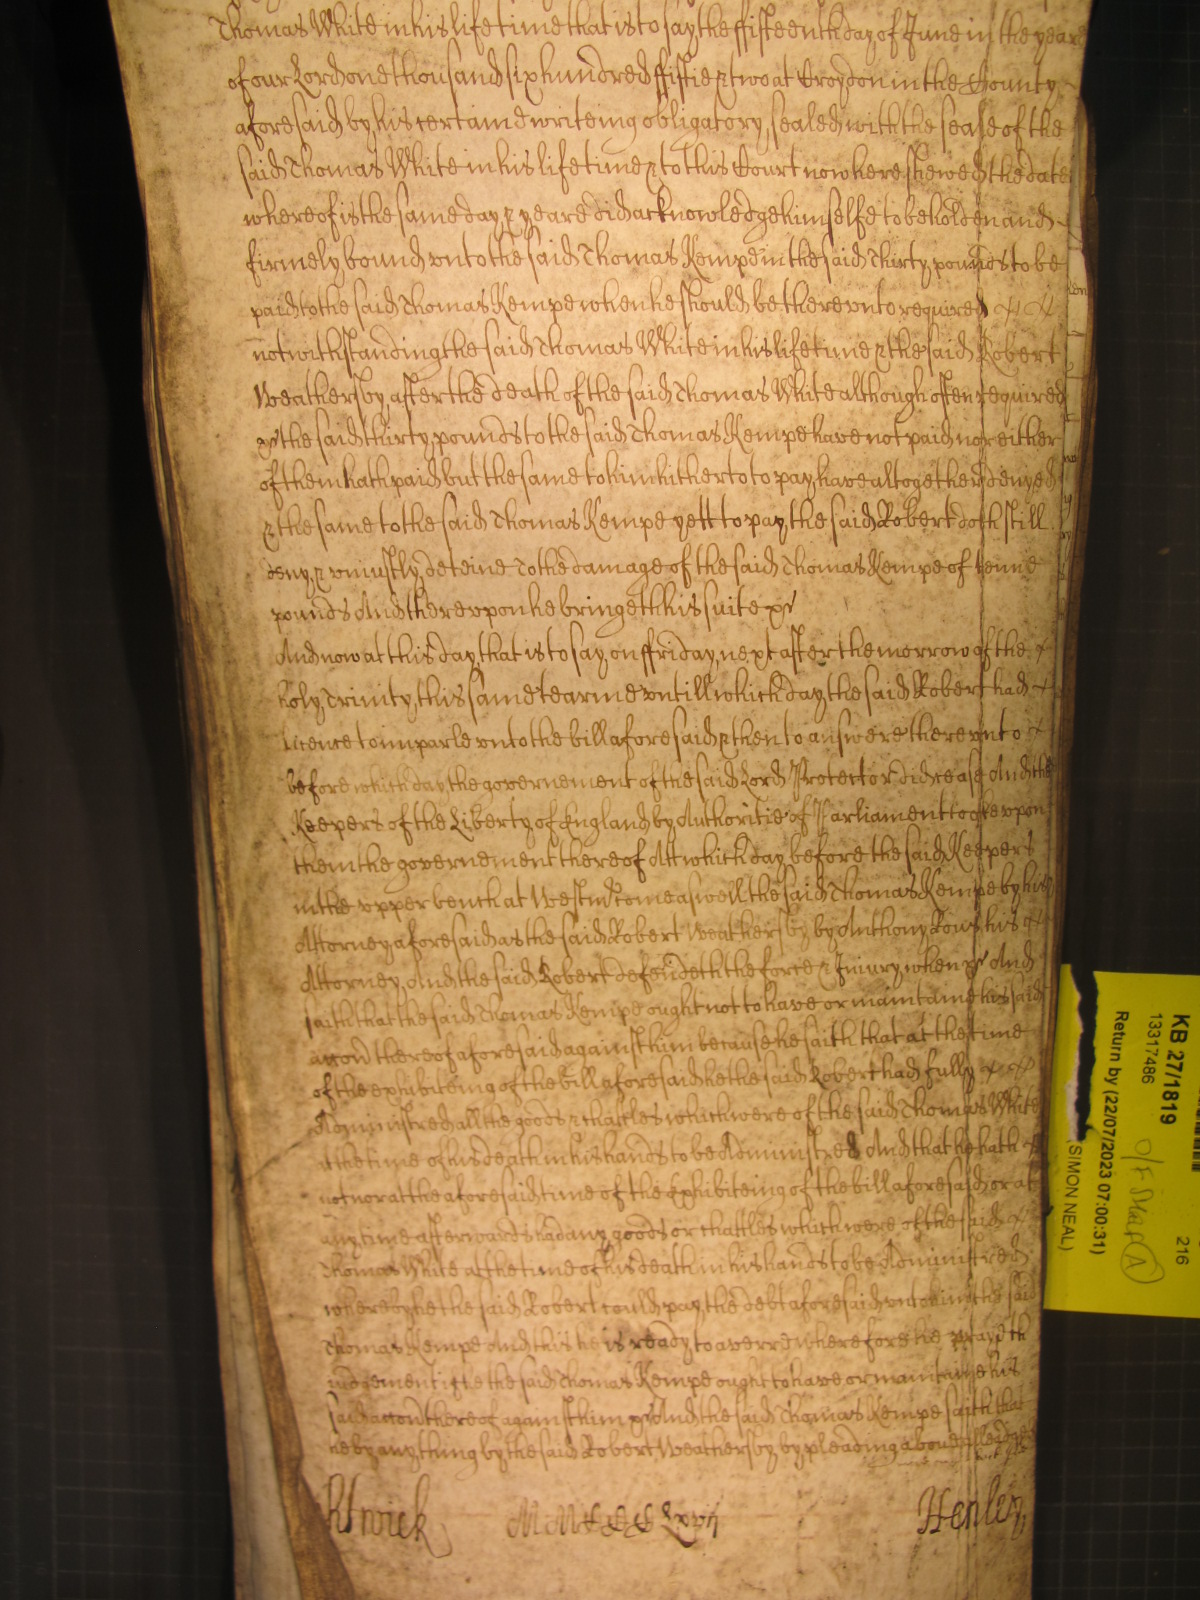 Thomas White in his life time that is to say the ffifteenth day of June in the yeare
of our Lord one thousand six hundred ffiftie & two at Croydon in the County
aforesaid by his certaine writeing obligatory sealed with the seale of the
said Thomas White in his life time & to this Court now here shewed the date
whereof is the same day & yeare did acknowledge himselfe to be holden and
firmely bound vnto the said Thomas Kempe in the said Thirty pounds to be
paid to the said Thomas Kempe when he should be therevnto required
notwithstanding the said Thomas White in his life time & the said Robert
Weathersby after the death of the said Thomas White although often required
&c the said thirty pounds to the said Thomas Kempe have not paid nor either
of them hath paid but the same to him hitherto to pay have altogether denyed
& the same to the said Thomas Kempe yett to pay the said Robert doth still
deny & vniustly deteine To the damage of the said Thomas Kempe of tenne
pounds And therevpon he bringeth his suite &c
And now at this day that is to say on ffriday next after the morrow of the
holy Trinity this same tearme vntill which day the said Robert had
licence to imparle vnto the bill aforesaid & then to answere therevnto
before which day the governement of the said Lord Protector did cease And the
Keepers of the Liberty of England by Authoritie of Parliament tooke vpon
them the governement thereof Att which day before the said Keepers
in the vpper bench at Westmr come aswell the said Thomas Kempe by his
Attorney aforesaid as the said Robert Weathersby by Anthony Rous his
Attorney And the said Robert defendeth the force & Iniury when &c And
saith that the said Thomas Kempe ought not to have or maintaine his said
accon thereof aforesaid against him because he saith that at the time
of the exhibiteing of the bill aforesaid he the said Robert had fully
Administred all the goods & chattles which were of the said Thomas White
at the time of his death in his hands to be Administred And that he hath
not nor at the aforesaid time of the Exhibiteing of the bill aforesaid or at
any time afterwards had any goods or chattles which were of the said
Thomas White at the time of his death in his hands to be Administred
whereby he the said Robert could pay the debt aforesaid vnto him the said
Thomas Kempe And this he is ready to averre wherefore he prayeth
iudgement if he the said Thomas Kempe ought to have or maintaine his
said accon thereof against him &c And the said Thomas Kempe saith that
he by any thing by the said Robert Weathersby by pleading above alledged
MMCCCC Lxvij
Henley
KB 27/1819
13317486
216
Return by (22/07/2023 07:00:31)
(SIMON NEAL)